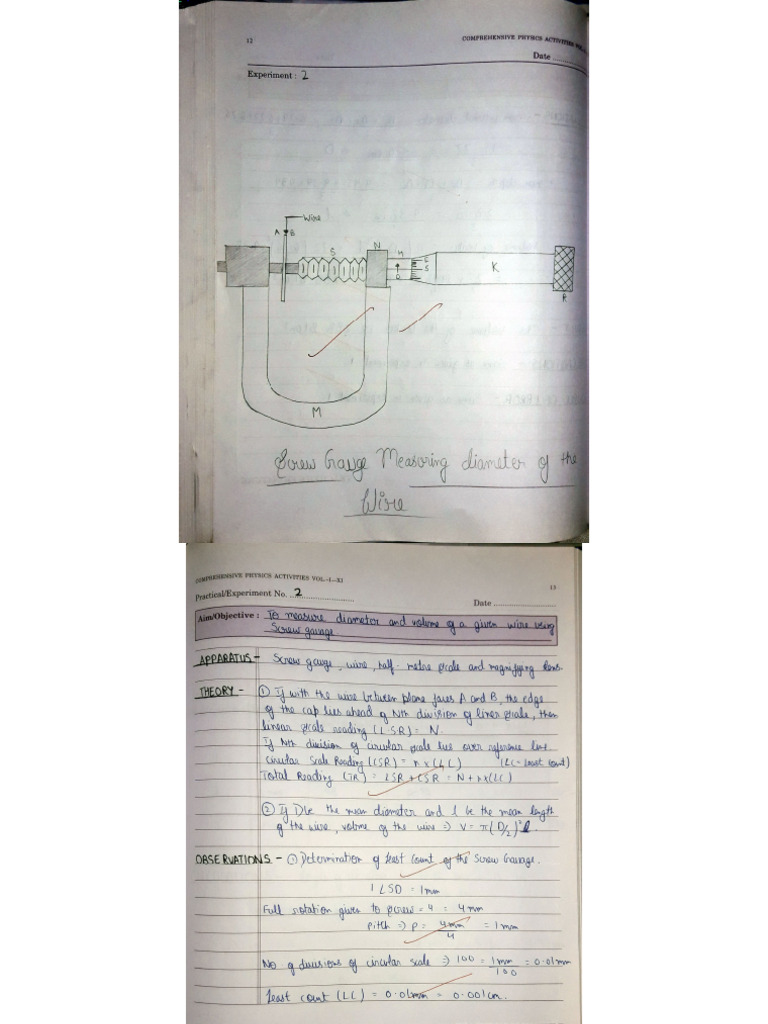 12
COMPREHENSIVE PHYSICS ACTIVITIES VOL.
Date
Experiment : 2
Wire
A B
S N H
K
R
M
Screw Gauge Measuring diameter of the
Wire
COMPREHENSIVE PHYSICS ACTIVITIES VOL.-I—XI
13
Practical/Experiment No. 2
Date
Aim/Objective : To measure diameter and volume of a given wire using
Screw gauage
APPARATUS - Screw gauge, wire, half-metre scale and magnifying lens.
THEORY - ① If with the wire between plane faces A and B, the edge
of the cap lies ahead of Nth division of liner scale, then
linear scale reading (L.S.R) = N.
If Nth division of circular scale lie over reference line.
Circular Scale Reading (CSR) = n x (L.C) (LC = least count)
Total Reading (TR) = LSR + CSR = N + n x (LC)
② If D be the mean diameter and l be the mean length
of the wire, volume of the wire => V = π(D/2)²l.
OBSERVATIONS - ① Determination of least count of the Screw Gauage.
1 LSD = 1mm
Full rotation given to screw = 4 = 4mm
Pitch => P = 4mm/4 = 1mm
No of divisions of circular scale => 100 = 1mm/100 = 0.01mm
Least count (LC) = 0.01mm = 0.001cm.